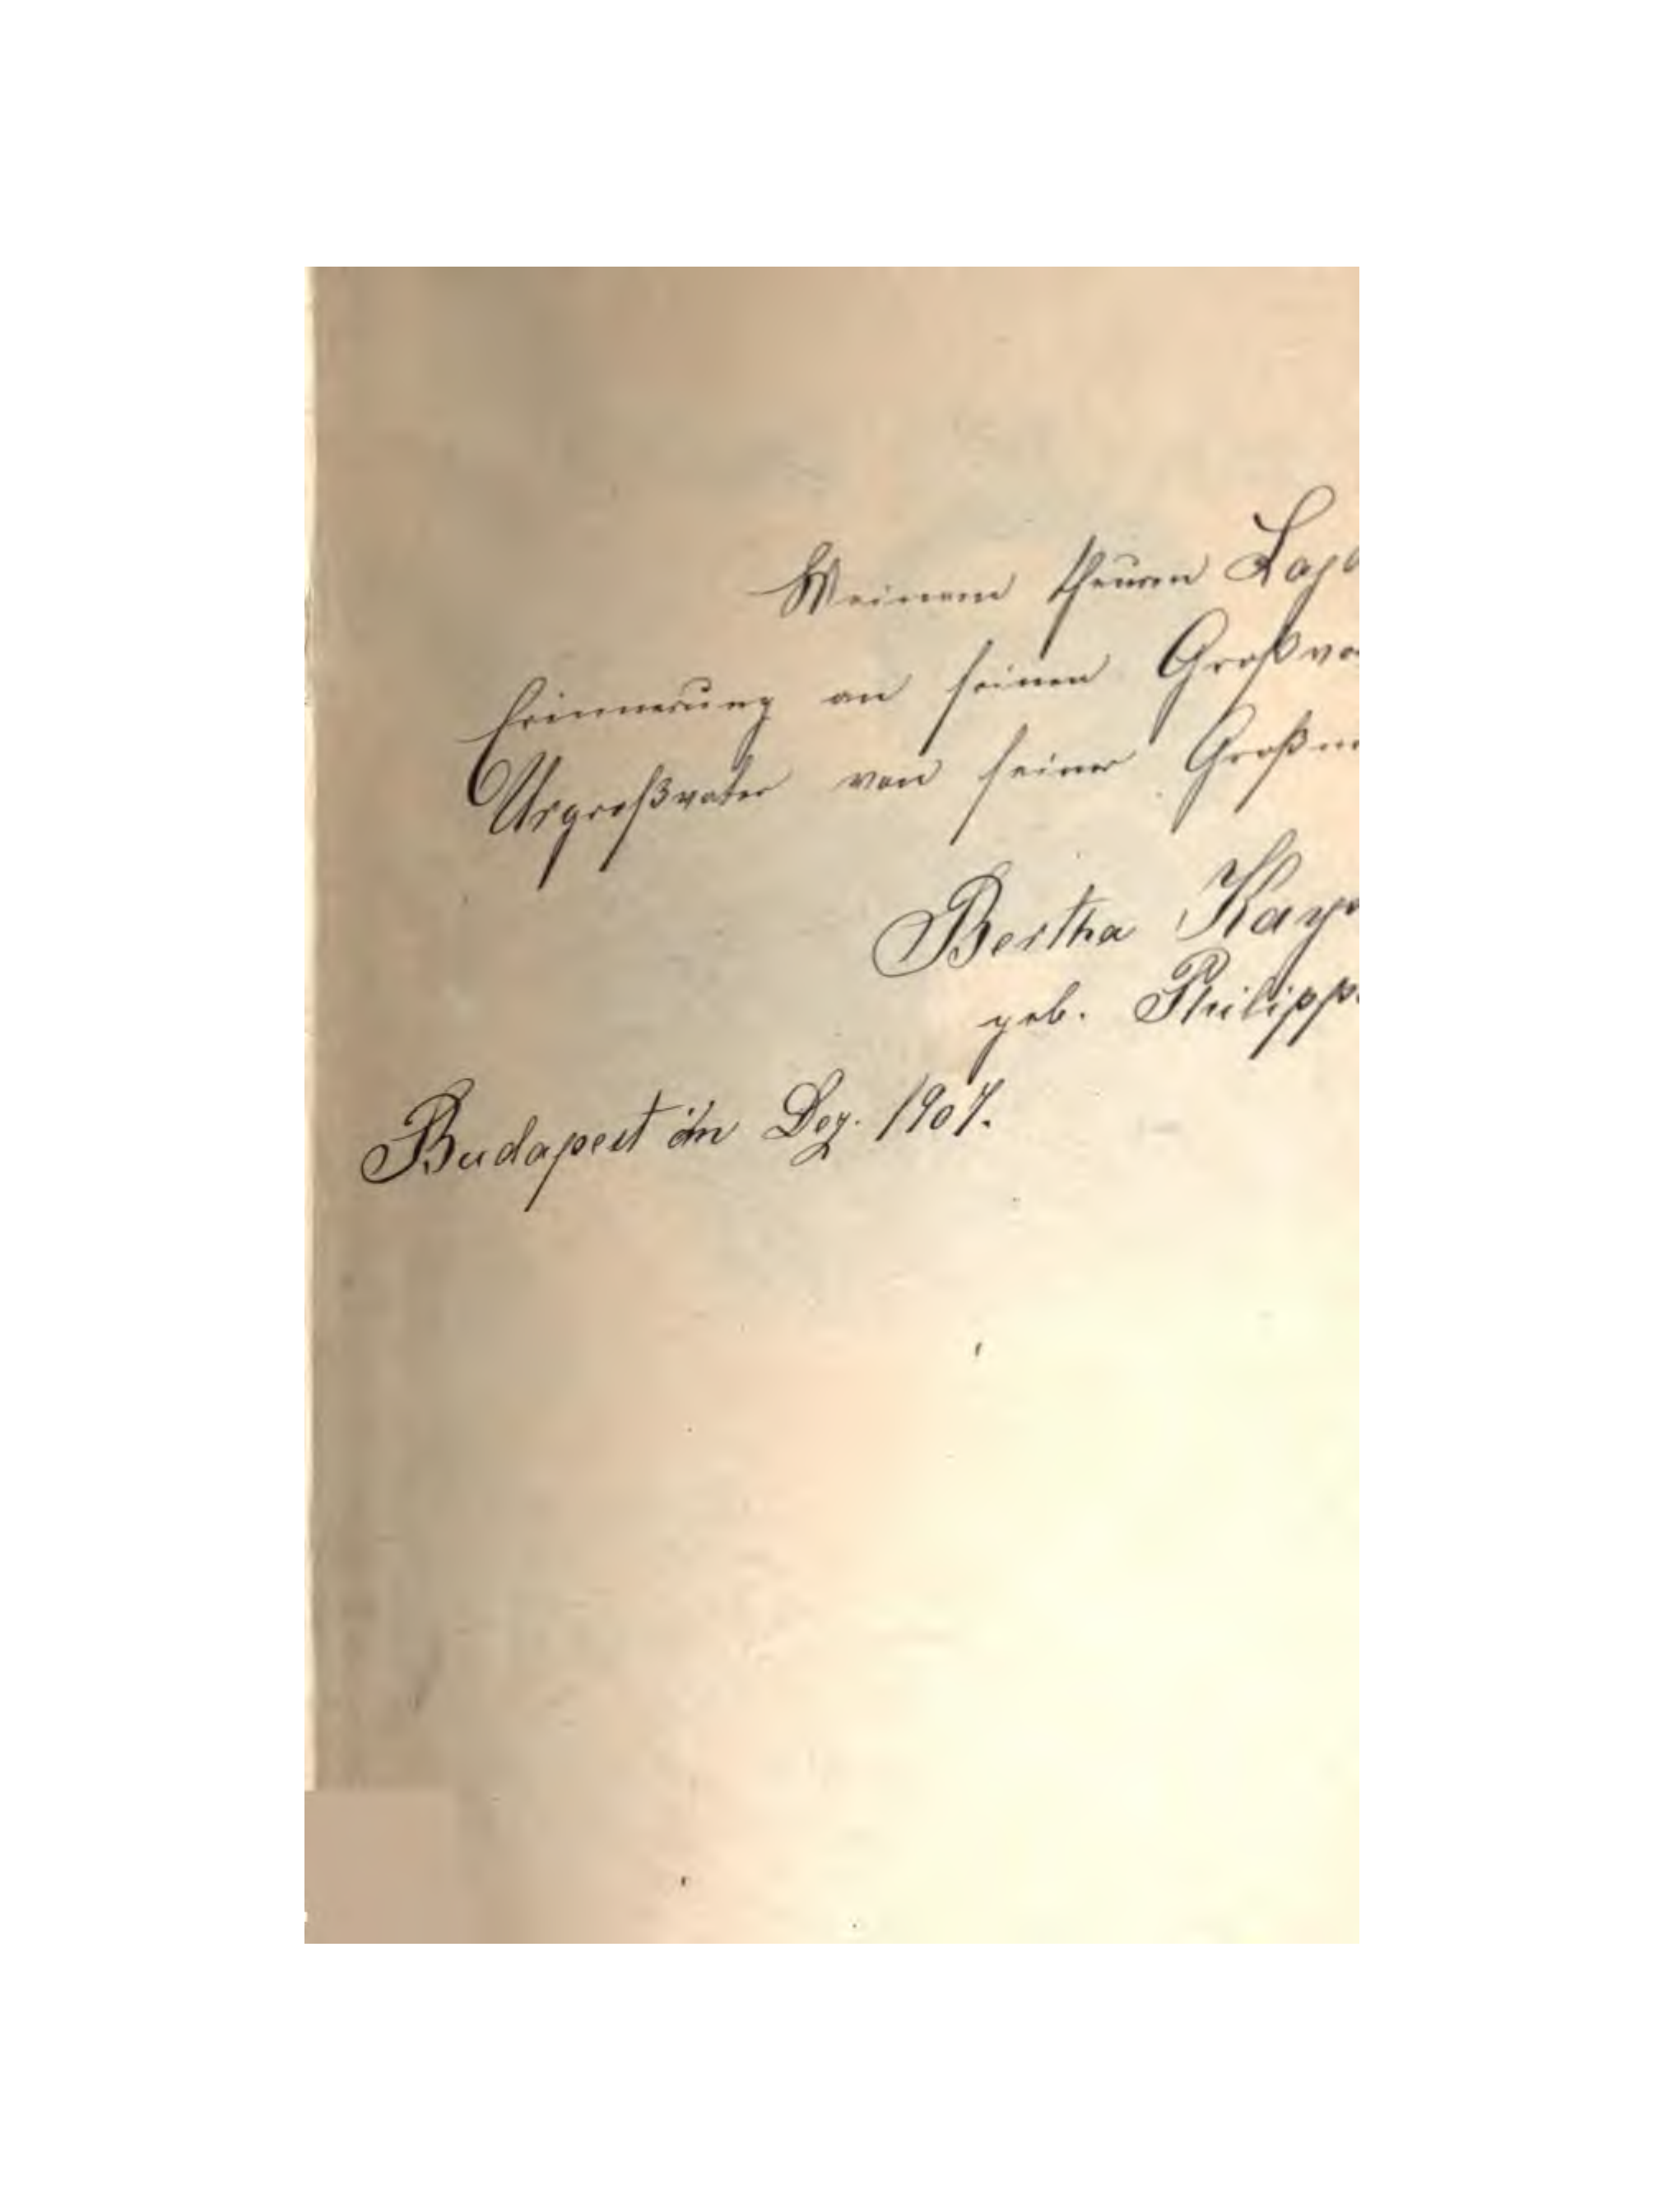 Meinem theuren Lajo
Erinnerung an seinen Großva
Urgroßvater von seiner Großm
Bertha Kay
geb. Philipp
Budapest im Dez. 1907.